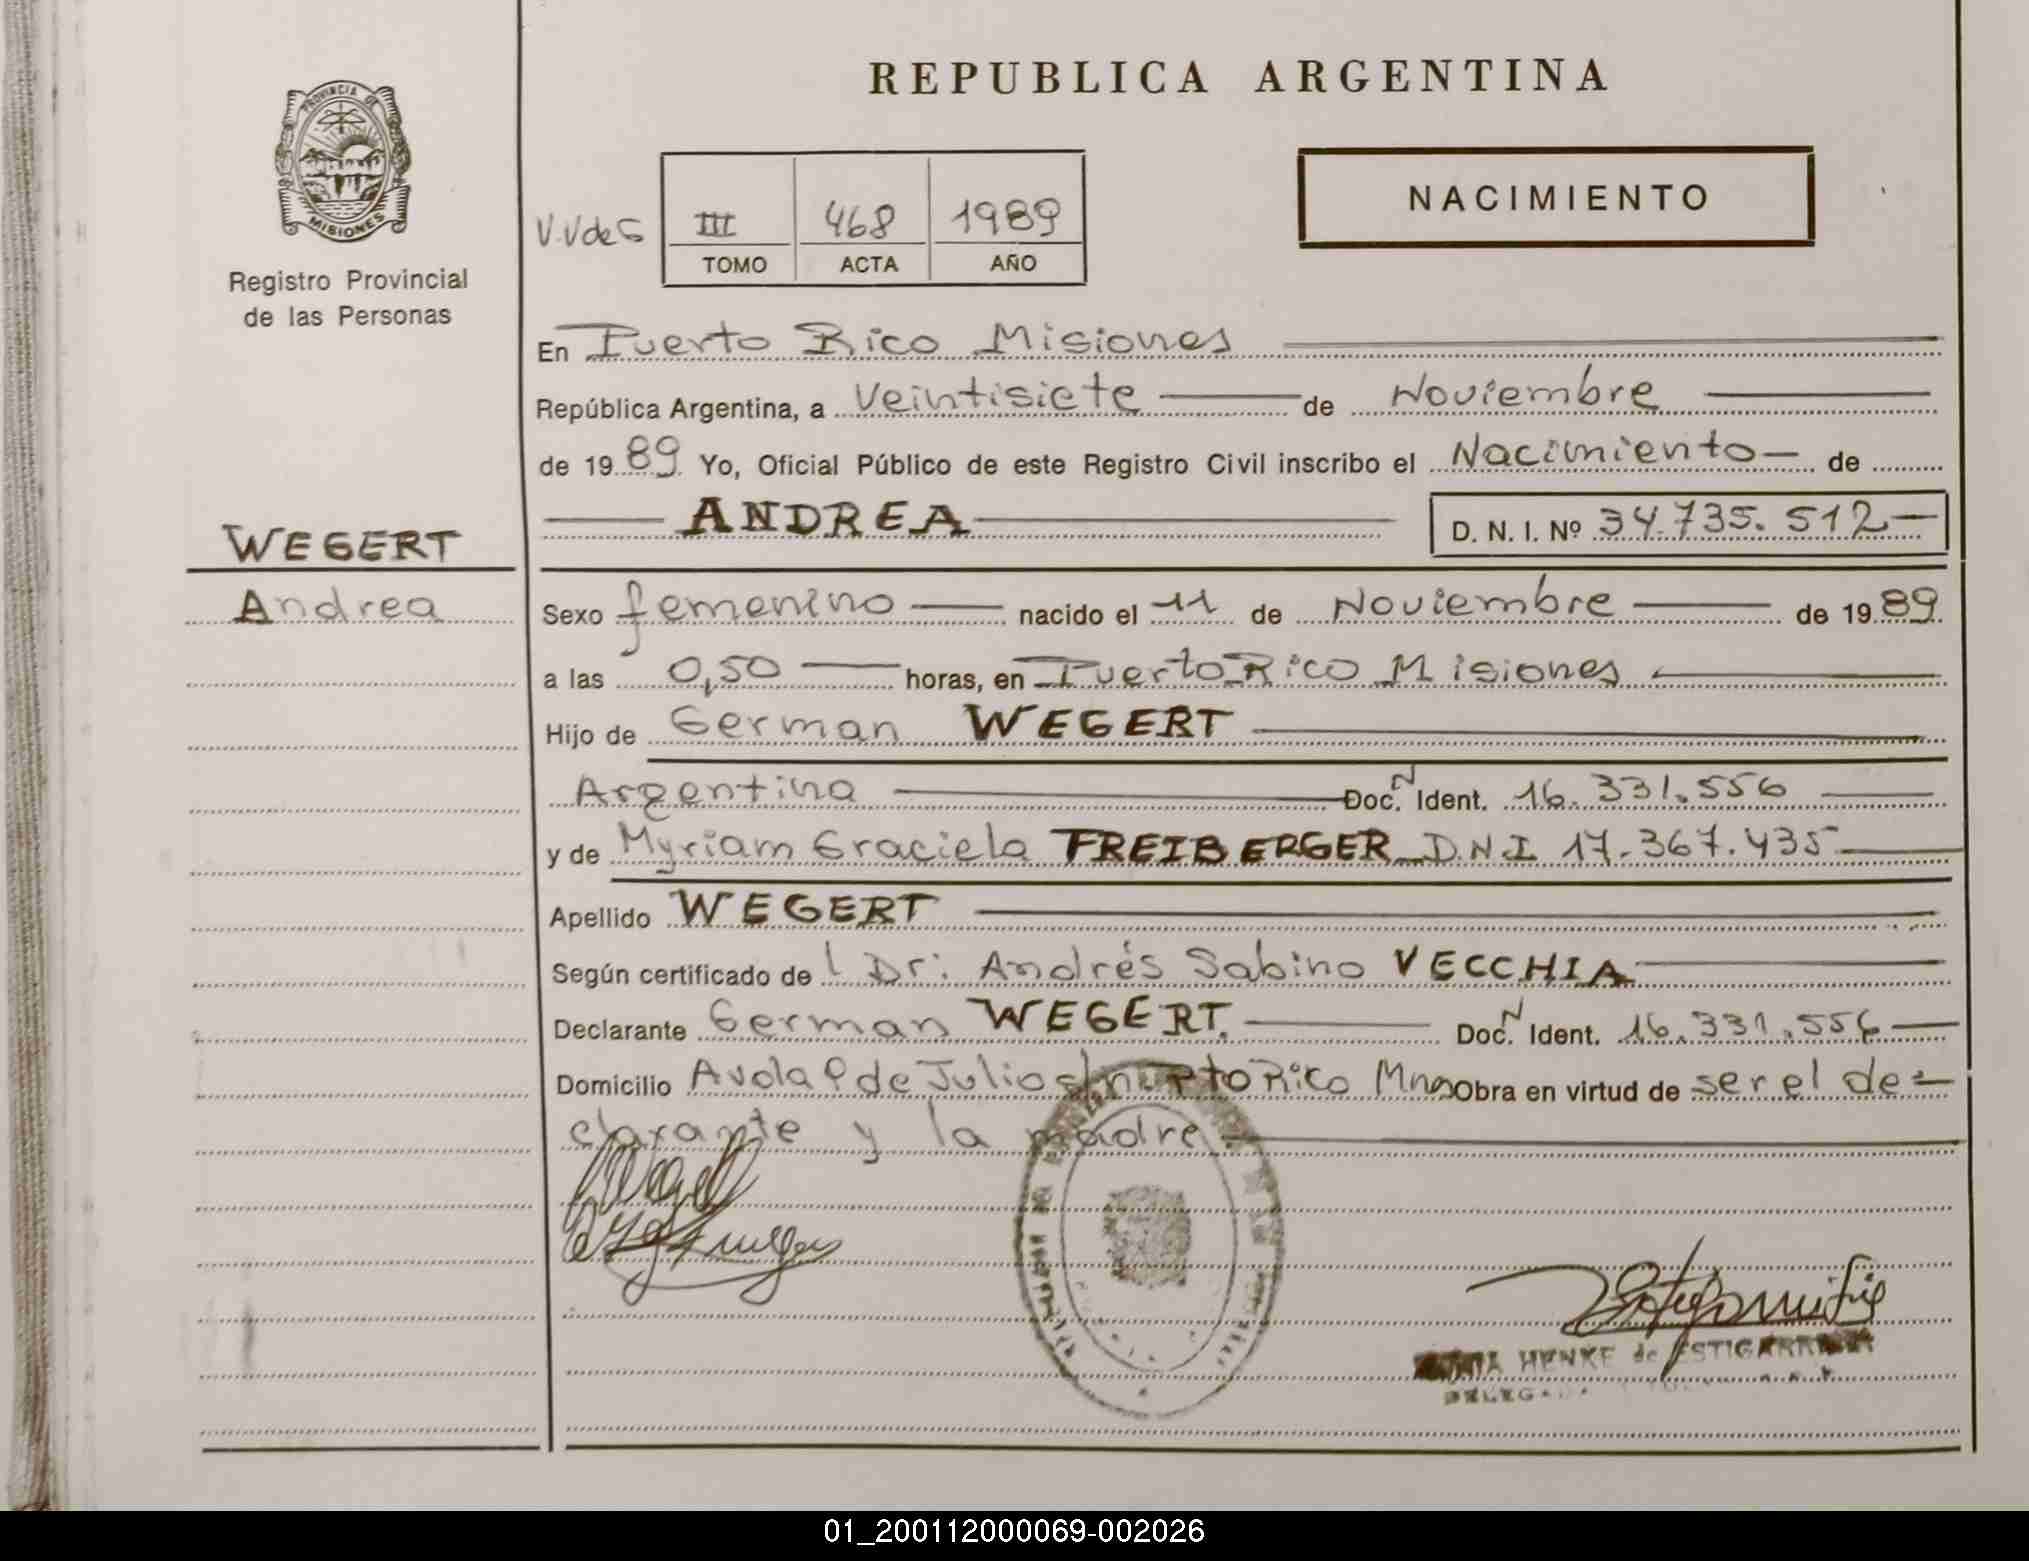 REPUBLICA ARGENTINA
PROVINCIA DE
MISIONES
Registro Provincial
de las Personas
V.V de G
III 468 1989
TOMO ACTA AÑO
NACIMIENTO
En Puerto Rico Misiones
República Argentina, a Veintisiete de Noviembre
de 1989 Yo, Oficial Público de este Registro Civil inscribo el Nacimiento de
ANDREA D. N. I. Nº 34.735.512
WEGERT
Andrea
Sexo femenino nacido el 11 de Noviembre de 1989
a las 0,50 horas, en Puerto Rico Misiones
Hijo de German WEGERT
Argentina Doc. N Ident. 16.331.556
y de Myriam Graciela FREIBERGER D.N.I 17.367.435
Apellido WEGERT
Según certificado de l Dr: Andrés Sabino VECCHIA
Declarante German WEGERT. Doc. N Ident. 16.331.556
Domicilio Avda 9 de Julio s/n Pto Rico Mnes Obra en virtud de ser el de=
clarante y la madre
HENKE de ESTIGARRIBIA